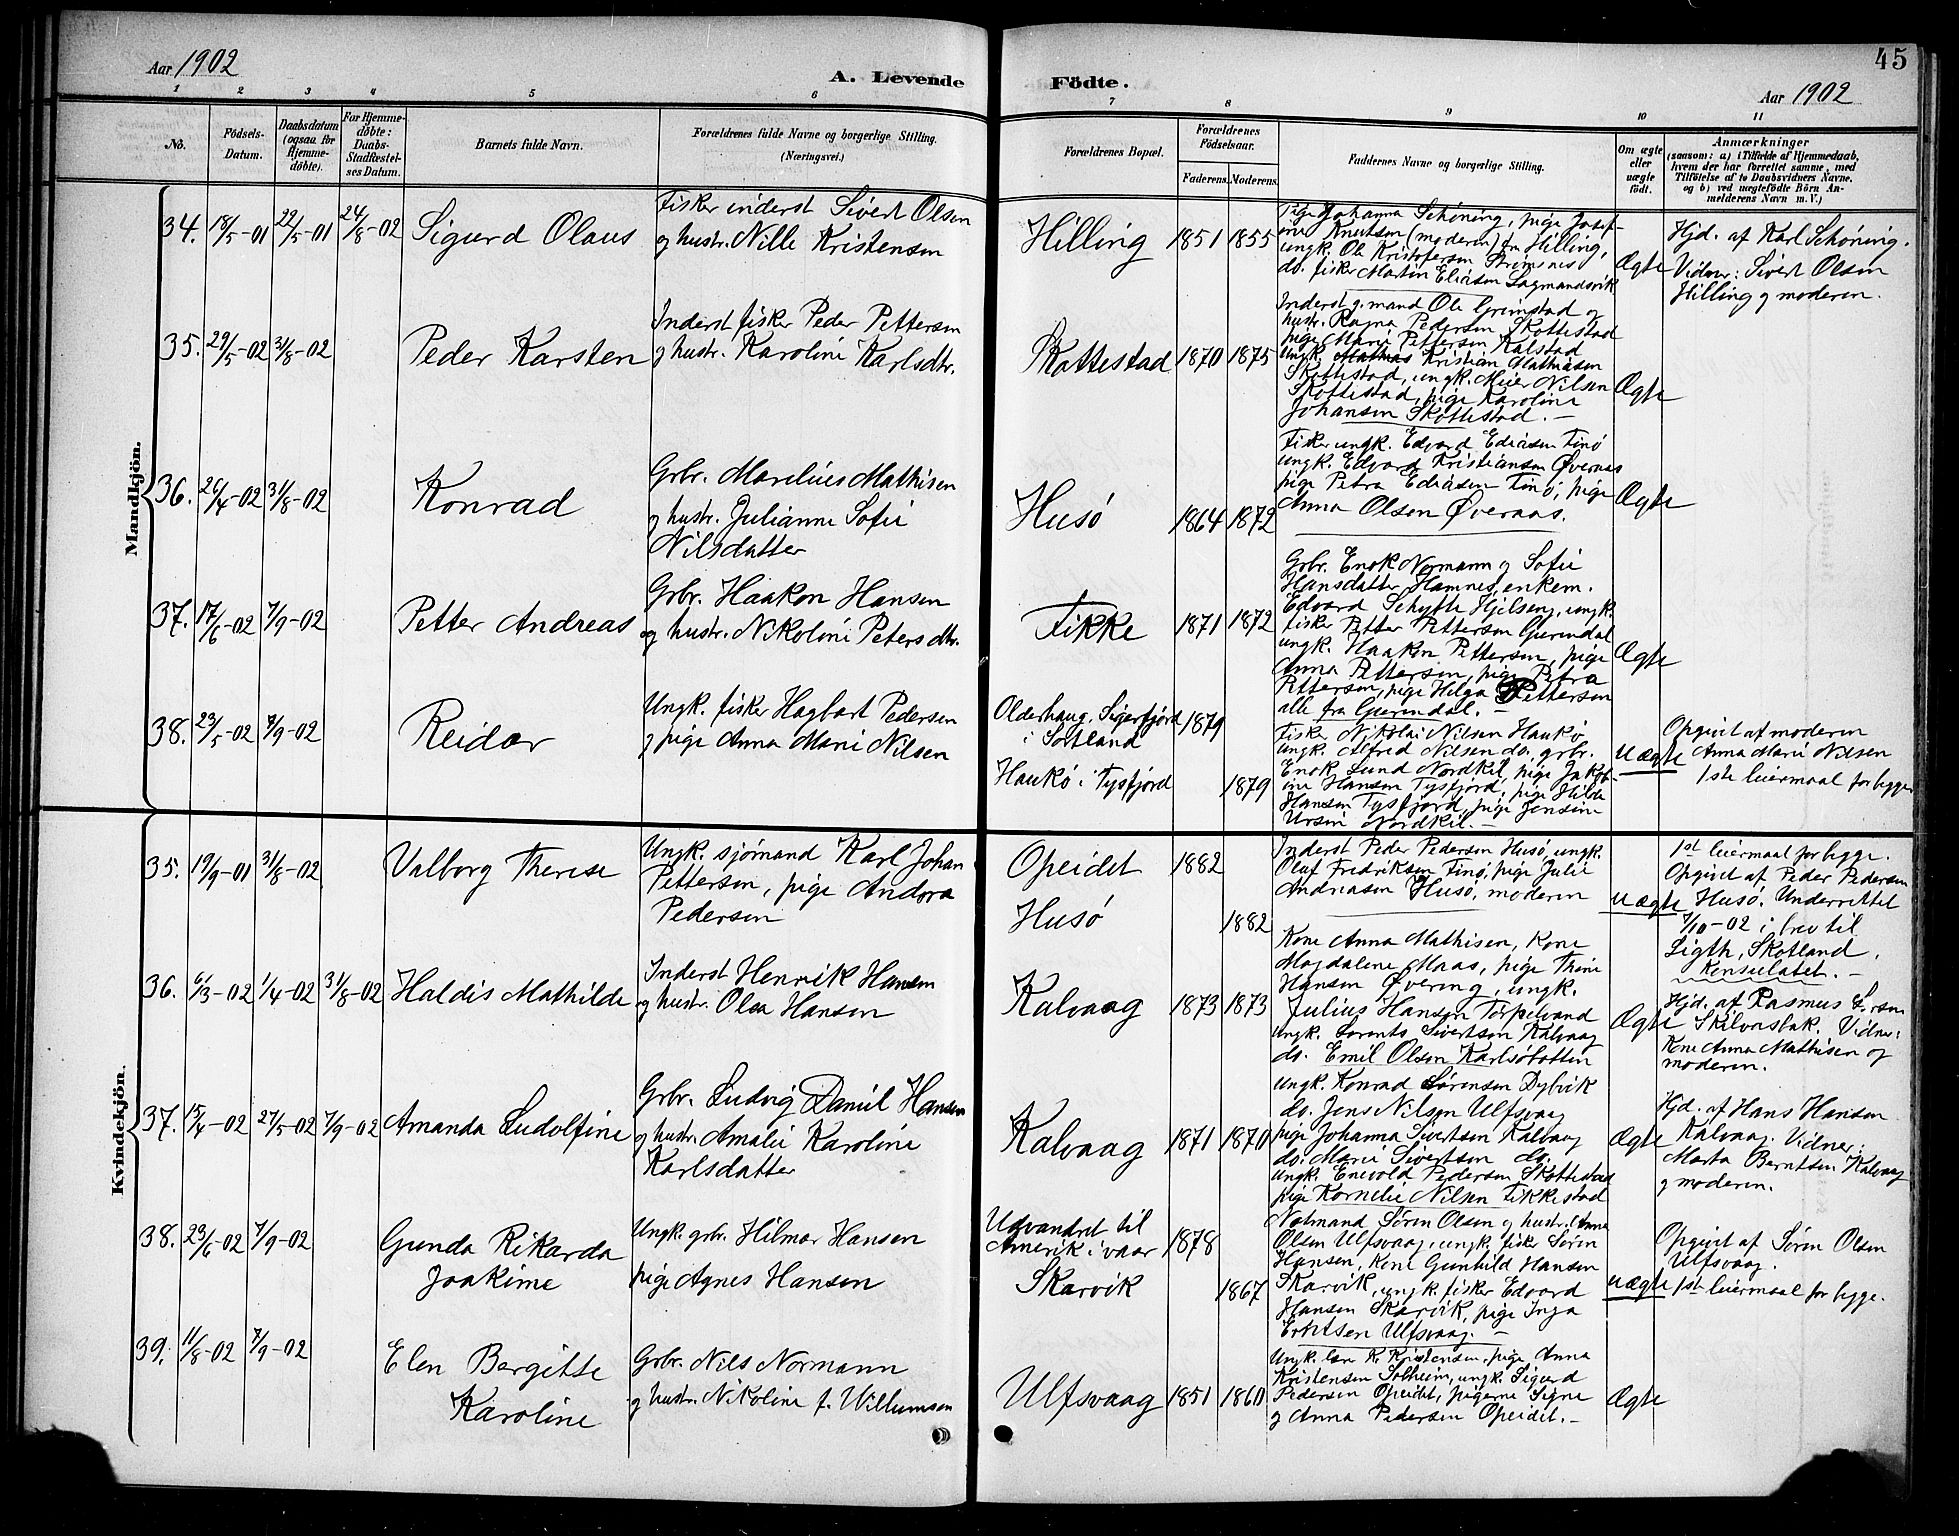 Aar 1902
A. Levende
Födte.
Aar 1902
45
1 2 3 4 5 6 7 8 9 10 11
No.
Födsels-Datum.
Daabsdatum (ogsaa for Hjemme-döbte).
For Hjemme-döbte: Daabs-Stadfæstel-ses Datum.
Barnets fulde Navn.
Forældrenes fulde Navne og borgerlige Stilling. (Næringsvei.)
Forældrenes Bopæl.
Forældrenes Födselsaar.
Faderens. Moderens.
Faddernes Navne og borgerlige Stilling.
Om ægte eller uægte födt.
Anmærkninger
(saasom: a) i Tilfælde af Hjemmedaab,
hvem der har forrettet samme, med
Tilföielse af to Daabsvidners Navne.
og b) ved uægtefödte Börn An-
melderens Navn m. V.)
Mandkjön.
34. 18/5-01 22/5-01 24/8-02 Sigurd Olaus
Fisker inderst Sivert Olsen
og hustr. Nille Kristensen
Hilling 1851 1855
Pige Johanna Schöning, pige Josef-
ine Knutsen (moderen) fra Hilling,
ungk. Ole Kristofersen Strömsnes
do. fisker Martin Eliasen Lagmandsvik
Ægte
Hjd. af Karl Schöning.
Vidner: Sivert Olsen
Hilling og moderen.
35. 29/5-02 31/8-02 Peder Karsten
Inderst fisker Peder Pettersen
og hustr. Karolini Karlsdtr.
Skottestad 1870 1875
Inderst g. mand Ole Grimstad og
hustr. Ragna Pedersen Skottestad
pige Marie Pettersen Kalstad
Ungk. Mathias Kristian Mathiasen
Skottestad, ungk. Meier Nilsen
Skottestad, pige Karoline
Johansen Skottestad. —
Ægte
36. 26/4-02 31/8-02 Konrad
Grbr. Marelius Mathisen
og hustr. Julianne Sofie
Nilsdatter
Husö 1864 1872
Fisker ungk. Edvard Ediasen Finö
ungk. Edvard Kristiansen Överaas
pige Petra Ediasen Finö, pige
Anna Olsen Överaas.
Ægte
37. 17/6-02 7/9-02 Petter Andreas
Grbr. Haakon Hansen
og hustr. Nikolini Petersdtr.
Fikke 1871 1872
Grbr. Enok Normann og Sofie
Hansdatter Hamnes, enkem.
Edvard Schytte Hjelseng, ungk.
fisker Petter Pettersen Guvindal
ungk. Haakon Pettersen, pige
Anna Pettersen, pige Petra
Pettersen, pige Helga Pettersen
alle fra Guvindal. —
Ægte
38. 23/5-02 7/9-02 Reidar
Ungk. fisker Hagbart Pedersen
og pige Anna Marie Nilsen
Olderhaug, Sigerfjord
i Sortland 1879
Haukö i Tysfjord 1879
Fisker Nikolai Nilsen Haukö
ungk. Alfred Nilsen do. grbr.
Enok Lund Nordkil, pige Jakob-
ine Hansen Tysfjord, pige Hilda
Hansen Tysfjord, pige Jensine
Ursin Nordkil. —
uægte
Opgivet af moderen
Anna Marie Nilsen
1ste leiermaal for begge
Kvindekjön.
35. 19/9-01 31/8-02 Valborg Therese
Ungk. sjömand Karl Johan
Pettersen, pige Andora
Pedersen
Opeidet 1882
Husö 1882
Inderst Peder Pedersen Husö, ungk.
Oluf Fredriksen Finö, pige Julie
Andreasen Husö, moderen
uægte
1st leiermaal for begge.
Opgivet af Peder Pedersen
Husö. Underrettet
7/10-02 i brev til
Ligth, Skotland,
Konsulatet. —
36. 6/3-02 1/4-02 31/8-02 Haldis Mathilde
Inderst Henrik Hansen
og hustr. Olea Hansen
Kalvaag 1873 1873
Kone Anna Mathisen, Kone
Magdalene Maas, pige Thine
Hansen Övereng, ungk.
Julius Hansen Torpelvand
ungk. Lorents Sivertsen Kalvaag
do. Emil Olsen Karlsöbotten
Ægte
Hjd. af Rasmus
Skilvasbak. Vidner:
Kone Anna Mathisen og
moderen.
37. 15/4-02 27/5-02 7/9-02 Amanda Ludolfine
Grbr. Ludvig Daniel Hansen
og hustr. Amalie Karoline
Karlsdatter
Kalvaag 1871 1870
Ungk. Konrad Sörensen Dybvik
do. Jens Nilsen Ulfsvaag
pige Johanna Sivertsen Kalvaag
do. Marie Sivertsen do.
ungk. Enevold Pedersen Skottestad
pige Kornelie Nilsen Fikkestad
Ægte
Hjd. af Hans Hansen
Kalvaag. Vidner:
Marta Berntsen Kalvaag
og moderen.
38. 23/6-02 7/9-02 Gunda Rikarda
Joakime
Ungk. grbr. Hilmar Hansen
pige Agnes Hansen
Udvandret til
Amerik i vaar 1878
Skarvik 1867
Notmand Sören Olsen og hustr. Anne
Olsen Ulfsvaag, ungk. fisker Sören
Hansen, Kone Gunhild Hansen
Skarvik, ungk. fisker Edvard
Hansen Skarvik, pige Inga
Ulfsvaag. —
uægte
Opgivet af Sören Olsen
Ulfsvaag.
1ste leiermaal for begge.
39. 11/8-02 7/9-02 Elen Bergitte
Karoline
Grbr. Nils Normann
og hustr. Nikoline f. Willumsen
Ulfsvaag 1851 1860
Ungk. lær. K. Kristensen, pige Anna
Kristensen Solheim, ungk. Sigurd
Pedersen Opeidet, pigerne Signe
og Anna Pedersen Opeidet. —
Ægte